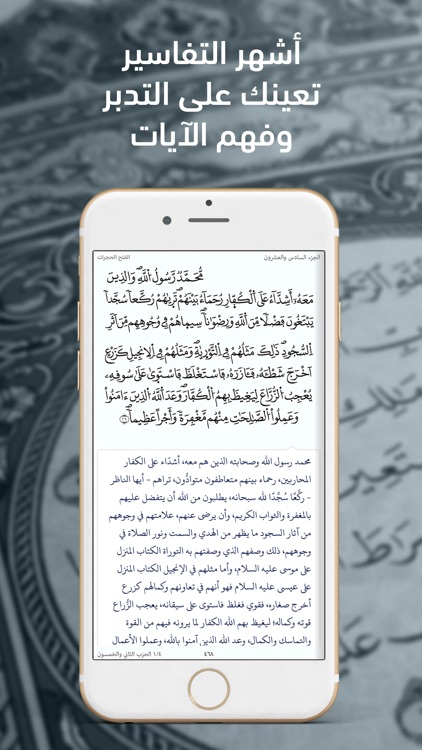 أشهر التفاسير
تعينك على التدبر
وفهم الآيات
الجزء السادس والعشرون
الفتح الحجرات
مُّحَمَّدٌ رَّسُولُ ٱللَّهِۚ وَٱلَّذِينَ
مَعَهُۥٓ أَشِدَّآءُ عَلَى ٱلْكُفَّارِ رُحَمَآءُ بَيْنَهُمْۖ تَرَىٰهُمْ رُكَّعًا سُجَّدًا
يَبْتَغُونَ فَضْلًا مِّنَ ٱللَّهِ وَرِضْوَٰنًاۖ سِيمَاهُمْ فِى وُجُوهِهِم مِّنْ أَثَرِ
ٱلسُّجُودِۚ ذَٰلِكَ مَثَلُهُمْ فِى ٱلتَّوْرَىٰةِۚ وَمَثَلُهُمْ فِى ٱلْإِنجِيلِ كَزَرْعٍ
أَخْرَجَ شَطْـَٔهُۥ فَـَٔازَرَهُۥ فَٱسْتَغْلَظَ فَٱسْتَوَىٰ عَلَىٰ سُوقِهِۦ
يُعْجِبُ ٱلزُّرَّاعَ لِيَغِيظَ بِهِمُ ٱلْكُفَّارَۗ وَعَدَ ٱللَّهُ ٱلَّذِينَ ءَامَنُوا۟
وَعَمِلُوا۟ ٱلصَّٰلِحَٰتِ مِنْهُم مَّغْفِرَةً وَأَجْرًا عَظِيمًۢا ٢٩
محمد رسول الله وصحابته الذين هم معه، أشدّاء على الكفار
المحاربين، رحماء بينهم متعاطفون متوادُّون، تراهم - أيها الناظر
- رُكَّعًا سُجَّدًا لله سبحانه، يطلبون من الله أن يتفضل عليهم
بالمغفرة والثواب الكريم، وأن يرضى عنهم، علامتهم في وجوههم
من آثار السجود ما يظهر من الهدي والسمت ونور الصلاة في
وجوههم، ذلك وصفهم الذي وصفتهم به التوراة الكتاب المنزل
على موسى عليه السلام، وأما مثلهم في الإنجيل الكتاب المنزل
على عيسى عليه السلام فهو أنهم في تعاونهم وكمالهم كزرع
أخرج صغاره، فقوي فغلظ فاستوى على سيقانه، يعجب الزُّراع
قوته وكماله؛ ليغيظ بهم الله الكفار لما يرونه فيهم من القوة
والتماسك والكمال، وعد الله الذين آمنوا بالله، وعملوا الأعمال
٤٦٨
١/٤ الحزب الثاني والخمسون